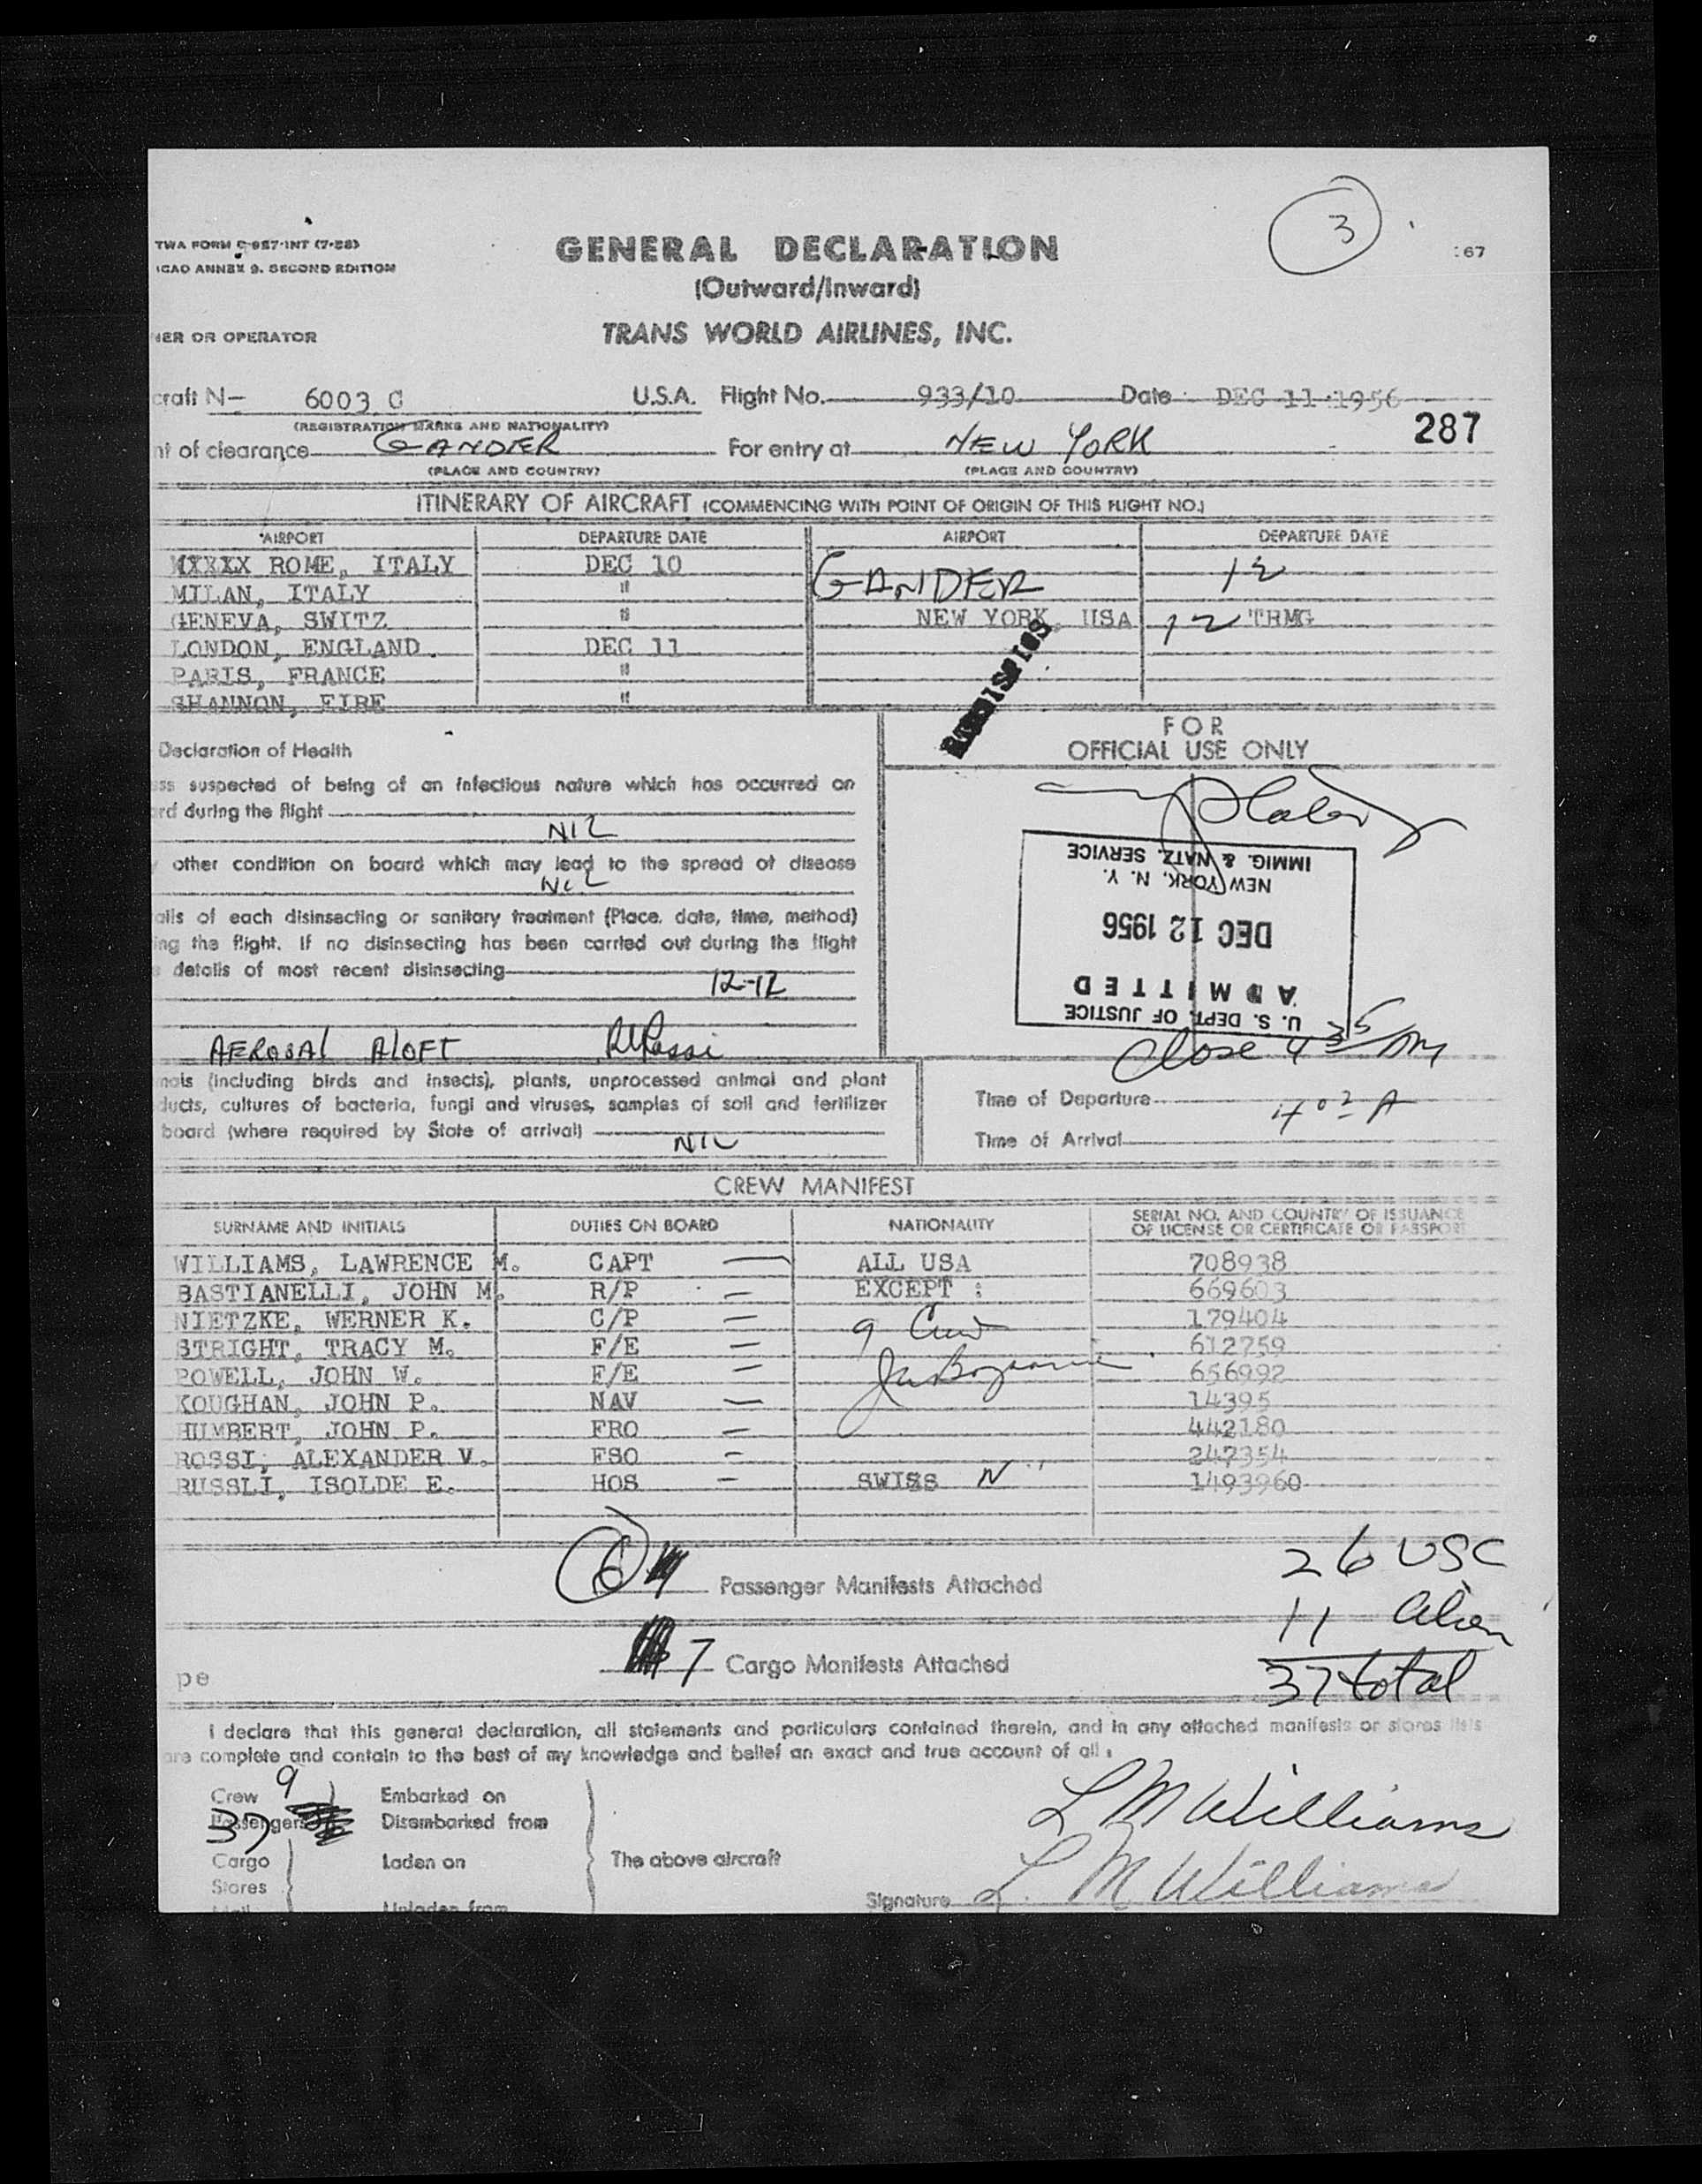 3
TWA FORM C-987-INT (7-53)
ICAO ANNEX 9. SECOND EDITION
GENERAL DECLARATION
:67
(Outward/Inward)
NER OR OPERATOR
TRANS WORLD AIRLINES, INC.
craft N- 6003 C U.S.A. Flight No. 933/10 Date DEC 11 1956
(REGISTRATION MARKS AND NATIONALITY)
287
nt of clearance GANDER For entry at NEW YORK
(PLACE AND COUNTRY) (PLACE AND COUNTRY)
ITINERARY OF AIRCRAFT (COMMENCING WITH POINT OF ORIGIN OF THIS FLIGHT NO.)
AIRPORT DEPARTURE DATE AIRPORT DEPARTURE DATE
ROME, ITALY DEC 10 GANDER 12
MILAN, ITALY "
GENEVA, SWITZ " NEW YORK, USA 12 TRMG
LONDON, ENGLAND. DEC 11
PARIS, FRANCE "
SHANNON, EIRE "
FOR
OFFICIAL USE ONLY
Declaration of Health
ess suspected of being of an infectious nature which has occurred on
ard during the flight
NIL
other condition on board which may lead to the spread of disease
NIL
ails of each disinsecting or sanitary treatment (Place, date, time, method)
ing the flight. If no disinsecting has been carried out during the flight
s details of most recent disinsecting
12-12
AEROSAL ALOFT
U. S. DEPT. OF JUSTICE
ADMITTED
DEC 12 1956
NEW YORK, N. Y.
IMMIG. & NATZ. SERVICE
Close 4 35 AM
mals (including birds and insects), plants, unprocessed animal and plant
ducts, cultures of bacteria, fungi and viruses, samples of soil and fertilizer
board (where required by State of arrival) NIL
Time of Departure
4 02 A
Time of Arrival
CREW MANIFEST
SURNAME AND INITIALS DUTIES ON BOARD NATIONALITY SERIAL NO. AND COUNTRY OF ISSUANCE OF LICENSE OR CERTIFICATE OR PASSPORT
WILLIAMS, LAWRENCE M. CAPT ALL USA 708938
BASTIANELLI, JOHN M. R/P EXCEPT : 669603
NIETZKE, WERNER K. C/P 9 Crew 179404
STRIGHT, TRACY M. F/E 612759
POWELL, JOHN W. F/E 656992
KOUGHAN, JOHN P. NAV 14395
HUMBERT, JOHN P. FRO 442180
ROSSI, ALEXANDER V. FSO 247354
RUSSLI, ISOLDE E. HOS SWISS N 1493960
6 Passenger Manifests Attached
26 USC
11 alien
37 total
7 Cargo Manifests Attached
pe
I declare that this general declaration, all statements and particulars contained therein, and in any attached manifests or stores lists
are complete and contain to the best of my knowledge and belief an exact and true account of all :
Crew 9 Embarked on
Passengers 37 Disembarked from
Cargo Laden on The above aircraft
Stores
Mail Unladen from
L M Williams
Signature L. M. Williams